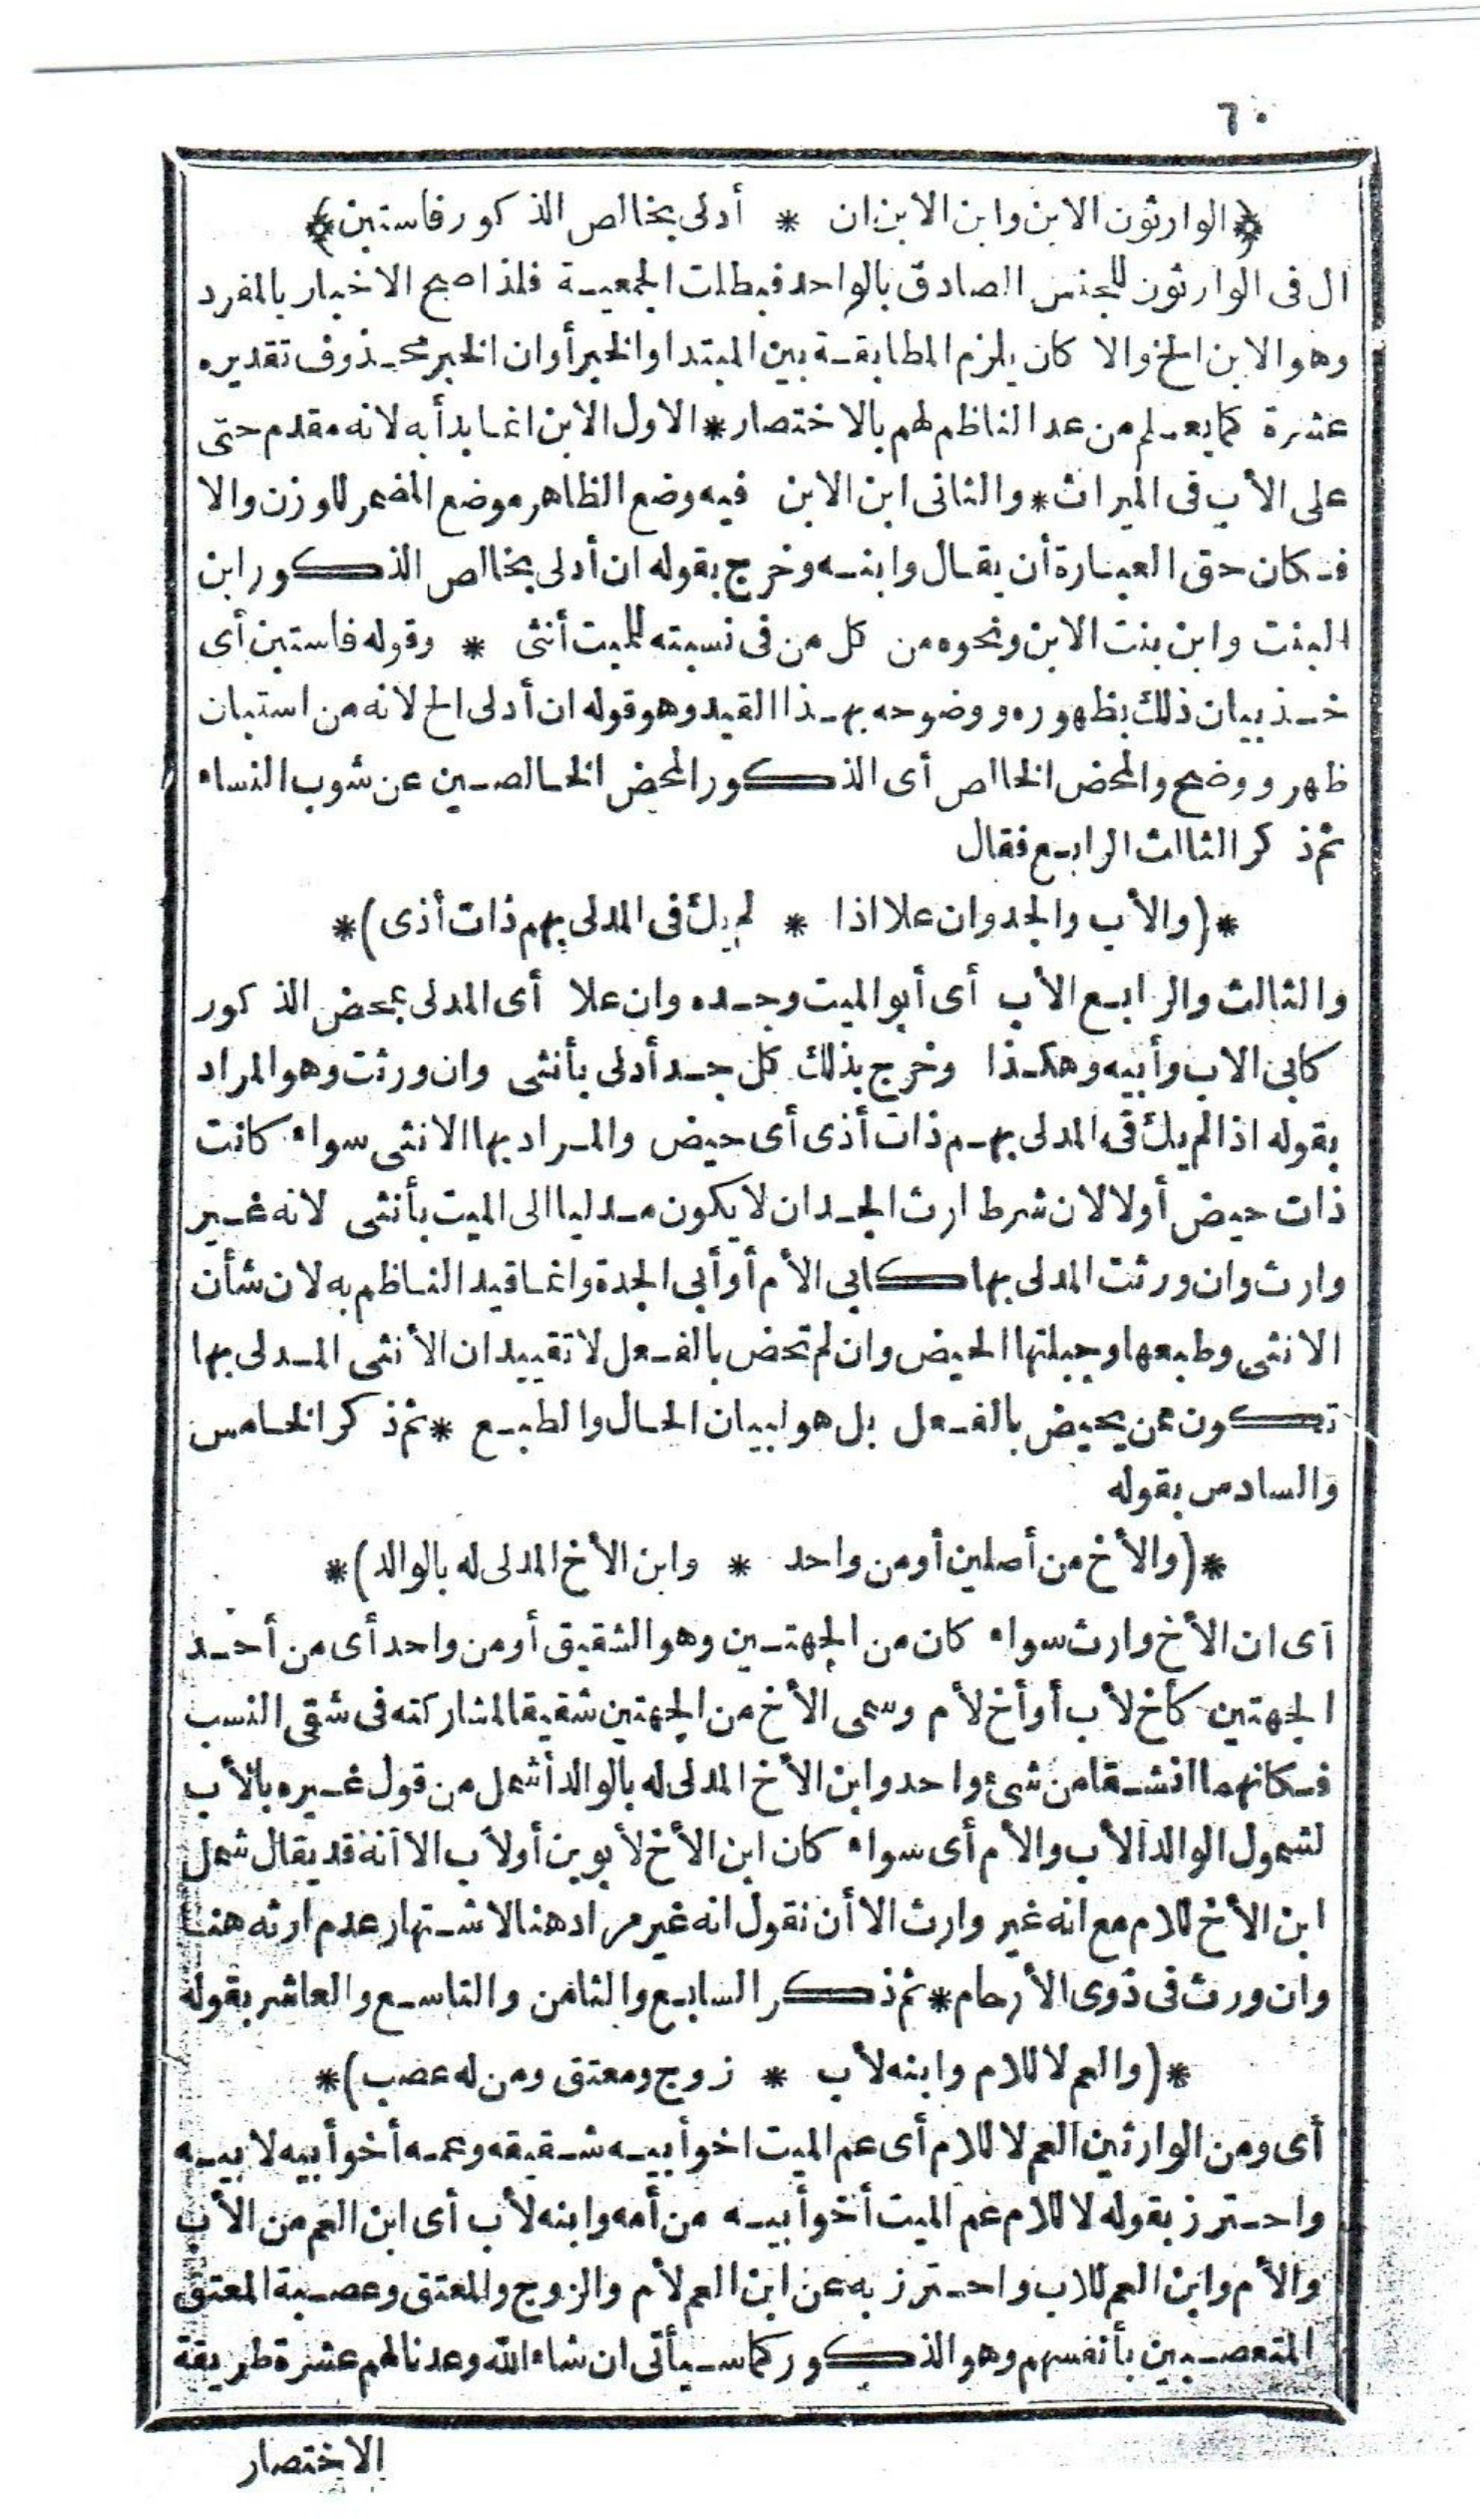 ٦٠
﴿الوارثون الابن وابن الابن ان * أدلى بخالص الذكور فاستبن﴾
ال فى الوارثون للجنس الصادق بالواحد فبطلت الجمعية فلذا صح الاخبار بالمفرد
وهو الابن الخ والا كان يلزم المطابقة بين المبتدا والخبر أوان الخبر محذوف تقديره
عشرة كما يعلم من عد الناظم لهم بالاختصار * الاول الابن انما بدأ به لانه مقدم حتى
على الأب فى الميراث * والثانى ابن الابن فيه وضع الظاهر موضع المضمر للوزن والا
فكان حق العبارة أن يقال وابنه وخرج بقوله ان أدلى بخالص الذكور ابن
البنت وابن بنت الابن ونحوه من كل من فى نسبته للميت أنثى * وقوله فاستبن أى
خذ بيان ذلك بظهوره ووضوحه بهذا القيد وهو قوله ان أدلى الخ لانه من استبان
ظهر ووضح والمحض الخالص أى الذكور المحض الخالصين عن شوب النساء
ثم ذكر الثالث الرابع فقال
*(والأب والجد وان علا اذا * لم يك فى المدلى بهم ذات أذى)*
والثالث والرابع الأب أى أبو الميت وجده وان علا أى المدلى بمحض الذكور
كابى الاب وأبيه وهكذا وخرج بذلك كل جد أدلى بأنثى وان ورثت وهو المراد
بقوله اذا لم يك فى المدلى بهم ذات أذى أى حيض والمراد بها الانثى سواء كانت
ذات حيض أولا لان شرط ارث الجد ان لا يكون مدليا الى الميت بأنثى لانه غير
وارث وان ورثت المدلى بها كابى الأم أو أبى الجدة وانما قيد الناظم به لان شأن
الانثى وطبعها وجبلتها الحيض وان لم تحض بالفعل لا تقييد ان الأنثى المدلى بها
تكون ممن يحيض بالفعل بل هو لبيان الحال والطبع * ثم ذكر الخامس
والسادس بقوله
*(والأخ من أصلين أو من واحد * وابن الأخ المدلى له بالوالد)*
أى ان الأخ وارث سواء كان من الجهتين وهو الشقيق أو من واحد أى من أحد
الجهتين كأخ لأب أو أخ لأم وسمى الأخ من الجهتين شقيقا لمشاركته فى شقى النسب
فكانهما انشقا من شئ واحد وابن الأخ المدلى له بالوالد أشمل من قول غيره بالأب
لشمول الوالد الأب والأم أى سواء كان ابن الأخ لأبوين أو لأب الا أنه قد يقال شمل
ابن الأخ للام مع انه غير وارث الا أن نقول انه غير مراد هنا لاشتهار عدم ارثه هنا
وان ورث فى ذوى الأرحام * ثم ذكر السابع والثامن والتاسع والعاشر بقوله
*(والعم لا للام وابنه لأب * زوج ومعتق ومن له عصب)*
أى ومن الوارثين العم لا للام أى عم الميت اخو أبيه شقيقه وعمه أخو أبيه لابيه
واحترز بقوله لا للام عم الميت أخو أبيه من أمه وابنه لأب أى ابن العم من الأب
والأم وابن العم للاب واحترز به عن ابن العم لأم والزوج والمعتق وعصبة المعتق
المتعصبين بأنفسهم وهو الذكور كما سيأتى ان شاء الله وعدنا لهم عشرة طريقة
الاختصار